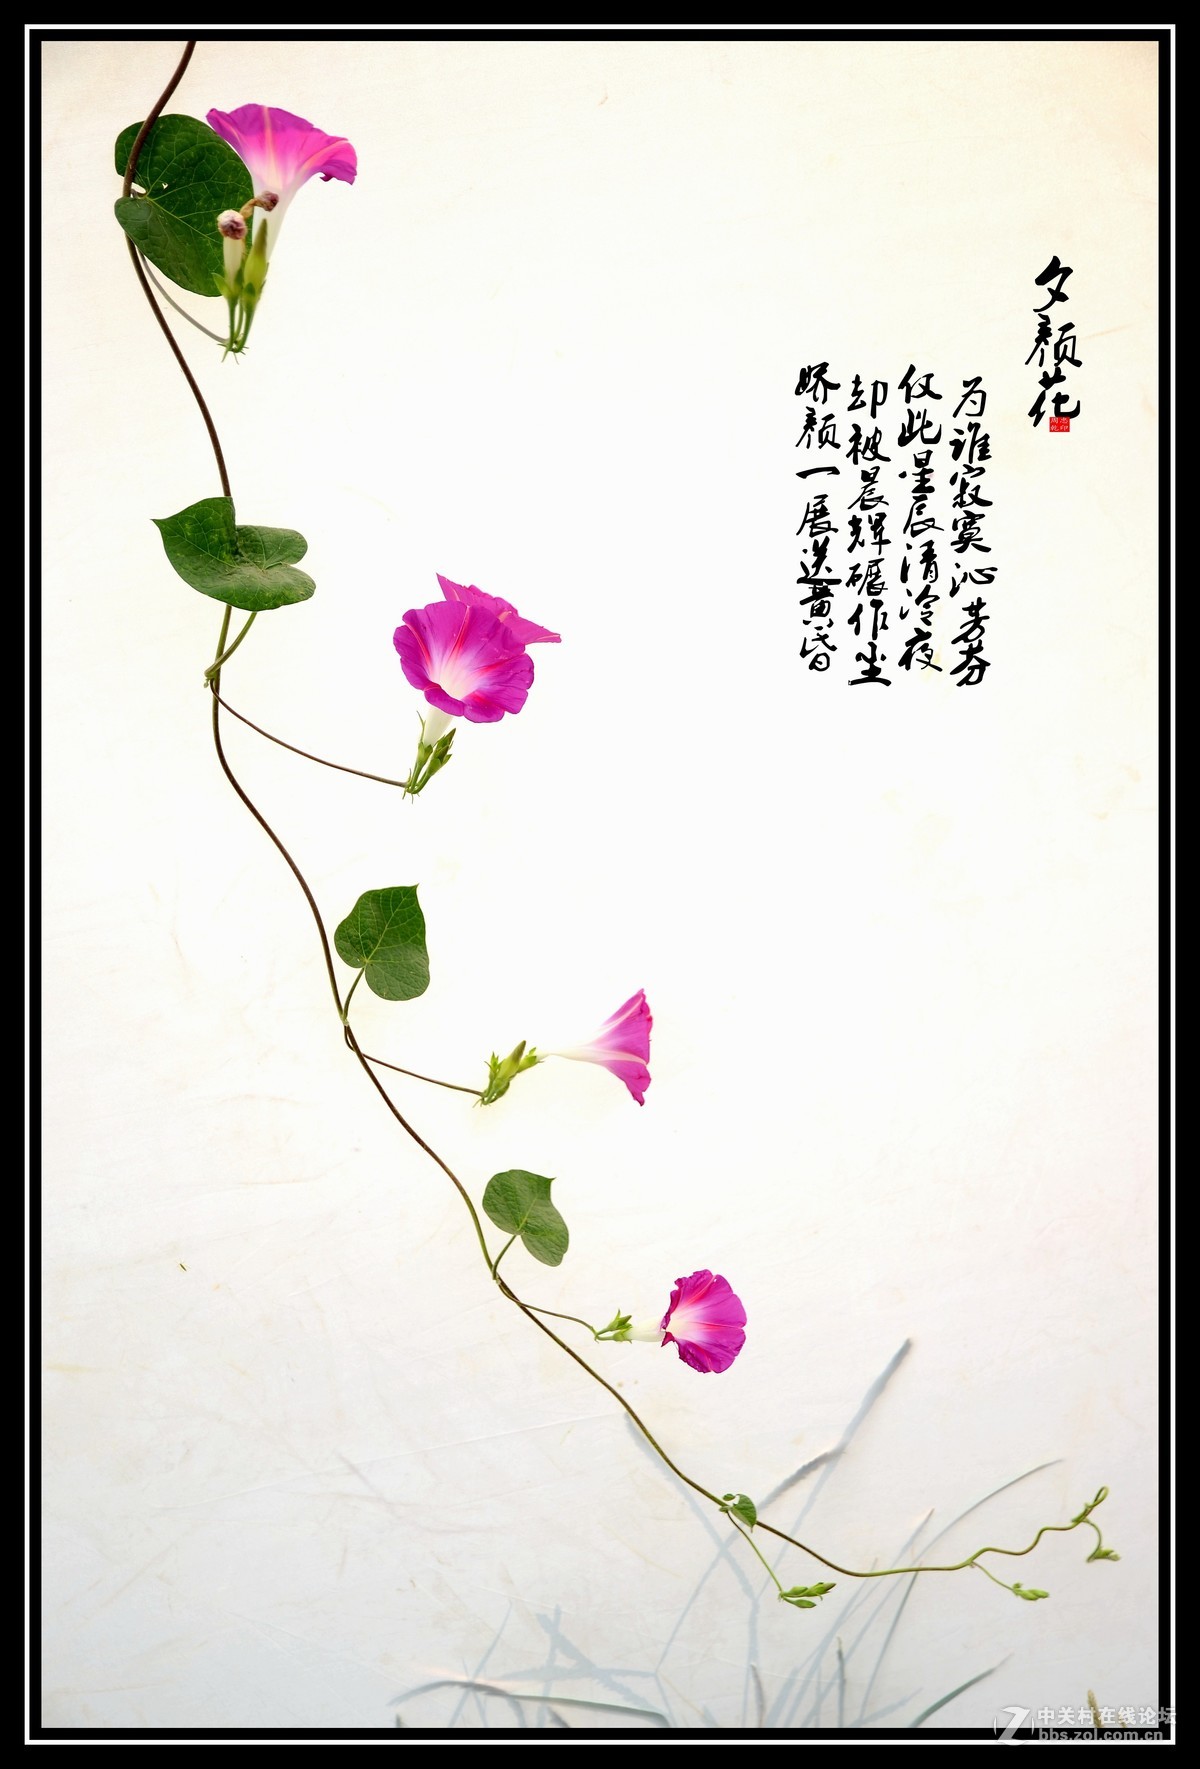 夕颜花
为谁寂寞沁芳芬
仅此星辰清冷夜
却被晨辉碾作尘
娇颜一展送黄昏
中关村在线论坛
bbs.zol.com.cn